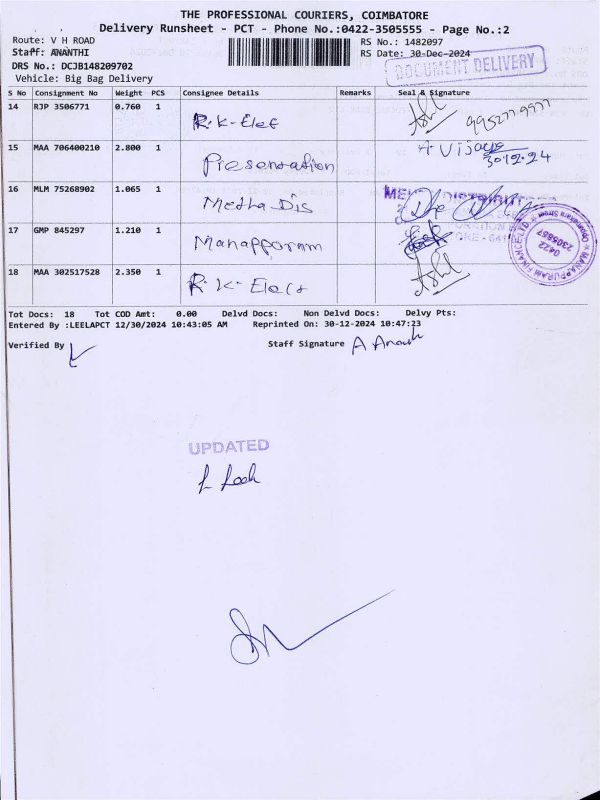 THE PROFESSIONAL COURIERS, COIMBATORE
Delivery Runsheet - PCT - Phone No.:0422-3505555 - Page No.:2
Route: V H ROAD RS No.: 1482097
Staff: ANANTHI RS Date: 30-Dec-2024
DRS No.: DCJB148209702 DOCUMENT DELIVERY
Vehicle: Big Bag Delivery
S No Consignment No Weight PCS Consignee Details Remarks Seal & Signature
14 RJP 3506771 0.760 1 R.K-Elec 9952779977
15 MAA 706400210 2.800 1 Presentation A. Vijaya
30.12.24
16 MLM 75268902 1.065 1 Metha Dis
17 GMP 845297 1.210 1 Manapporam MANAPPURAM FINANCE LTD. 0422 2305867
18 MAA 302517528 2.350 1 R.K-Elecs
Tot Docs: 18 Tot COD Amt: 0.00 Delvd Docs: Non Delvd Docs: Delvy Pts:
Entered By :LEELAPCT 12/30/2024 10:43:05 AM Reprinted On: 30-12-2024 10:47:23
Verified By Staff Signature
UPDATED